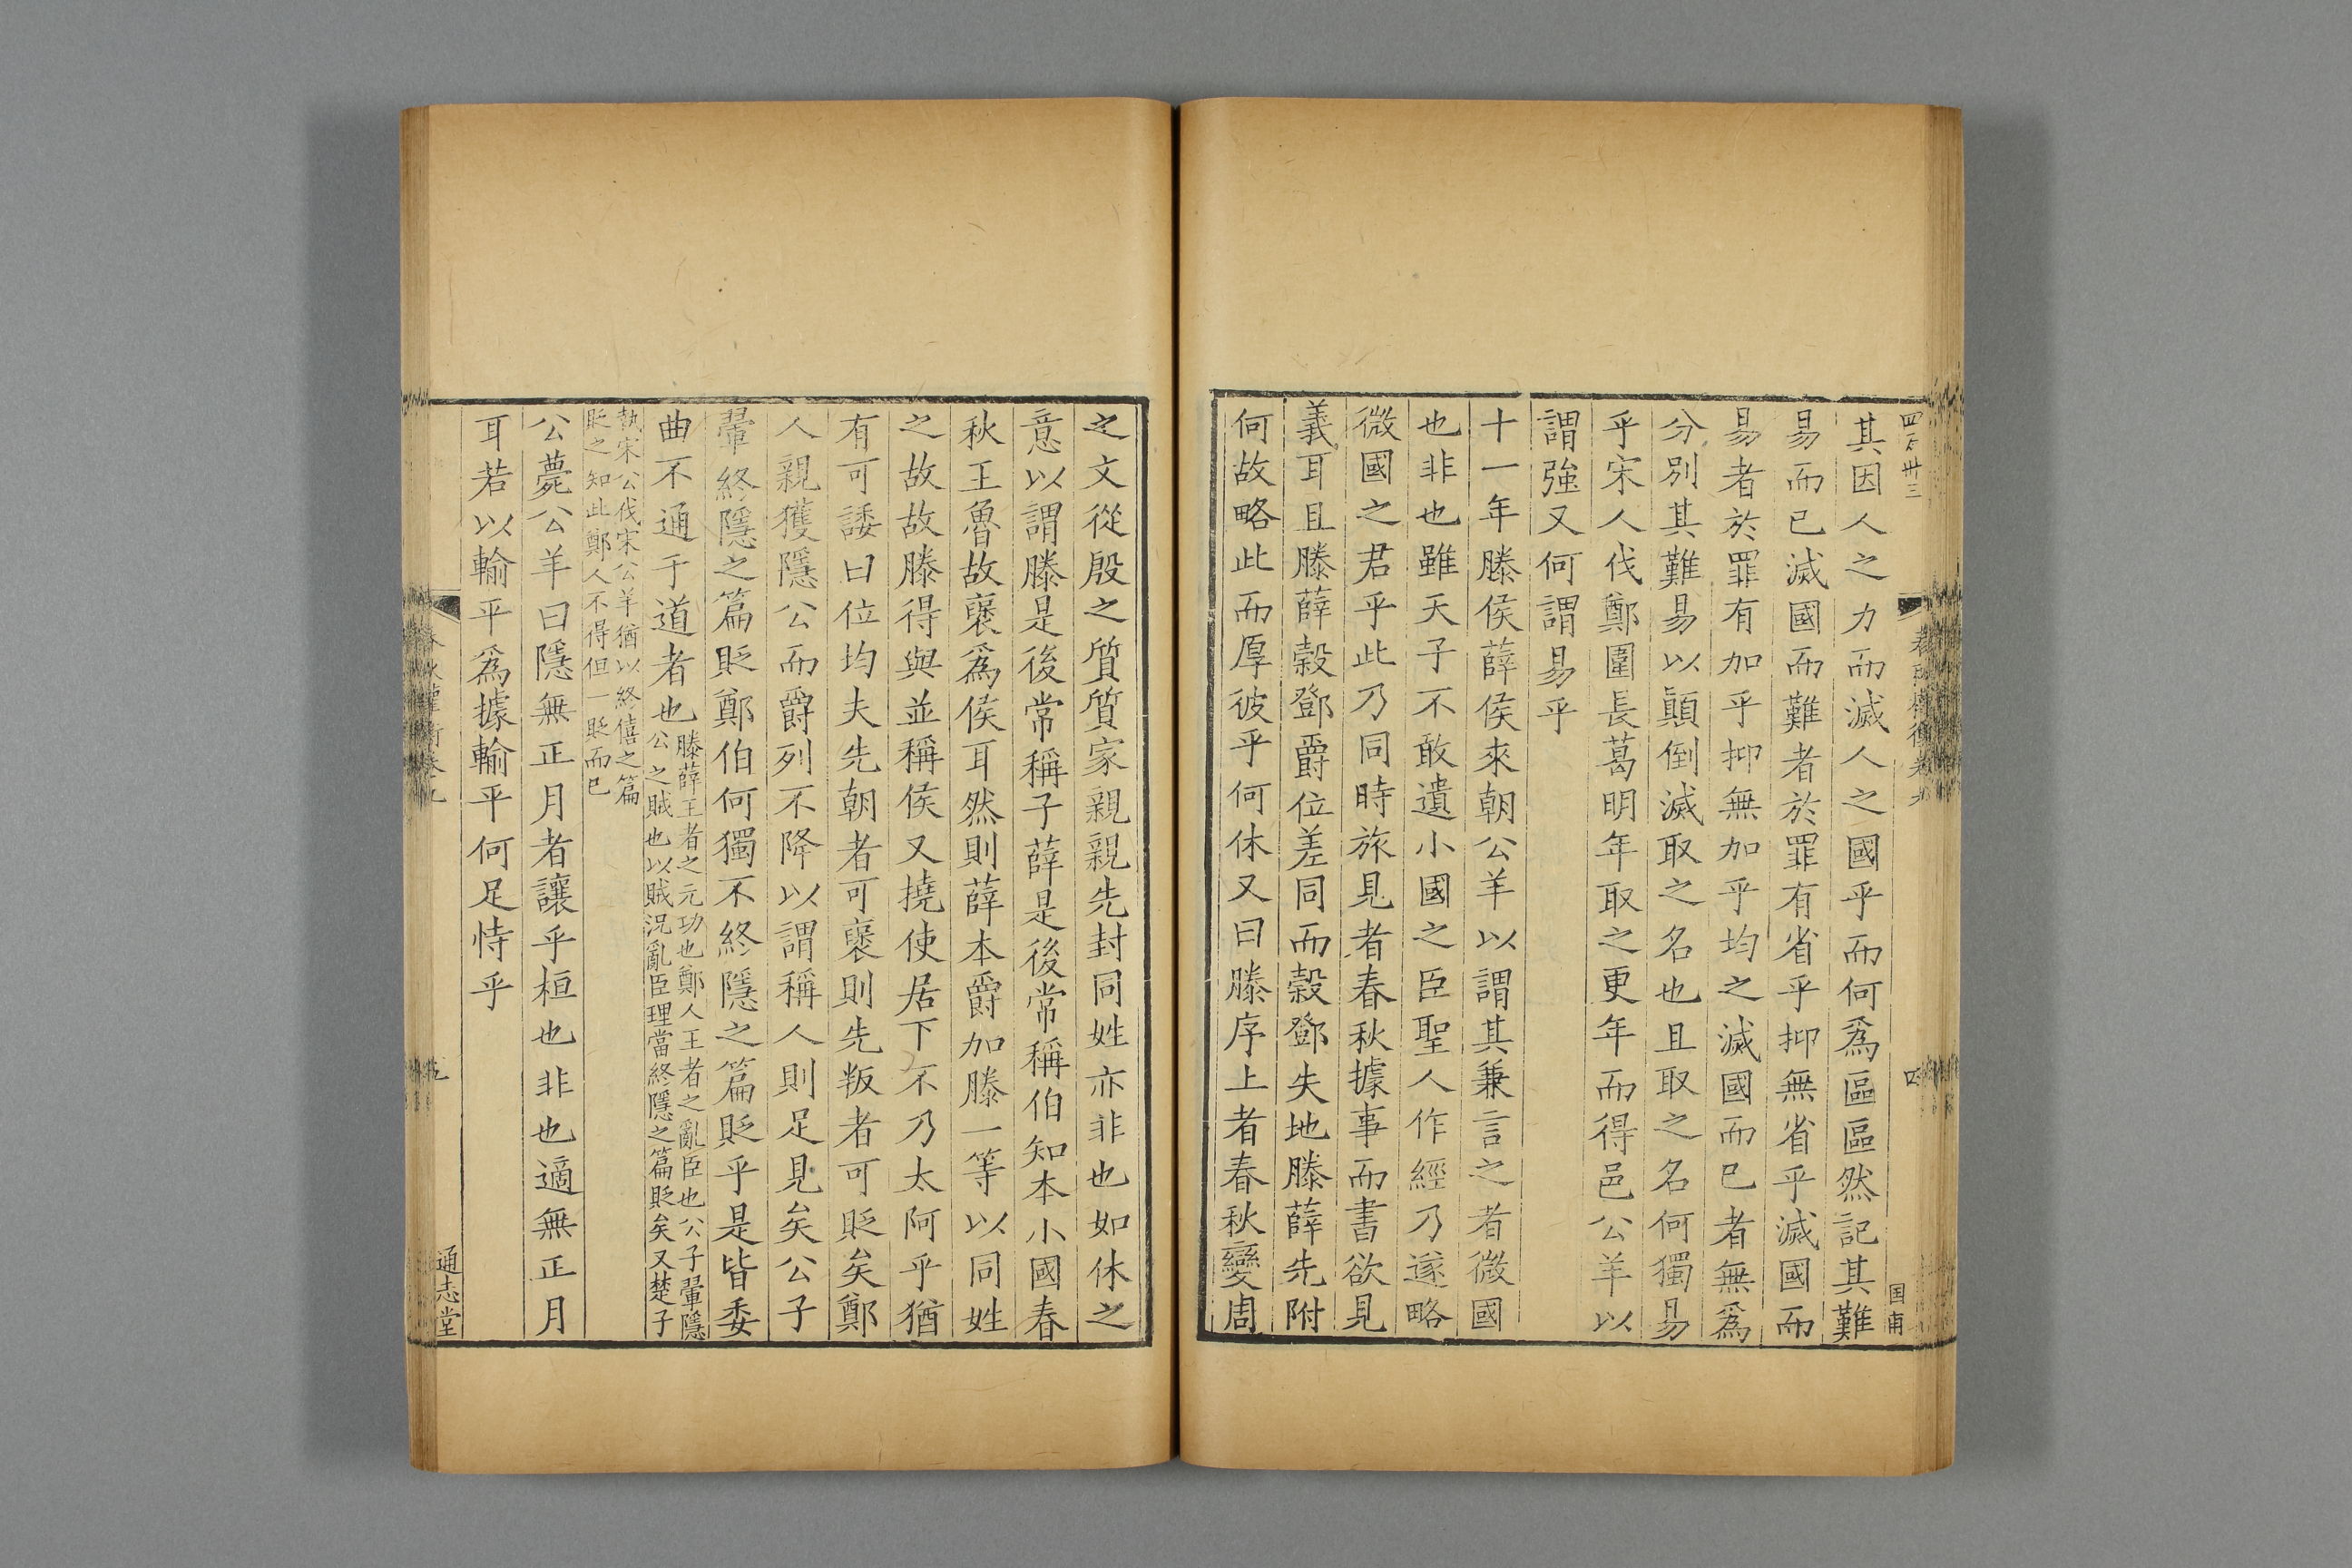 四百卅三
四
其因人之力而滅人之國乎而何爲區區然記其難
易而已滅國而難者於罪有省乎抑無省乎滅國而
易者於罪有加乎抑無加乎均之滅國而已者無爲
分別其難易以顛倒滅取之名也且取之名何獨易
乎宋人伐鄭圍長葛明年取之更年而得邑公羊以
謂強又何謂易乎
十一年滕侯薛侯來朝公羊以謂其兼言之者微國
也非也雖天子不敢遺小國之臣聖人作經乃遂略
微國之君乎此乃同時旅見者春秋據事而書欲見
義耳且滕薛穀鄧爵位差同而穀鄧失地滕薛先附
何故略此而厚彼乎何休又曰滕序上者春秋變周
之文從殷之質質家親親先封同姓亦非也如休之
意以謂滕是後常稱子薛是後常稱伯知本小國春
秋王魯故襃爲侯耳然則薛本爵加滕一等以同姓
之故故滕得與並稱侯又撓使居下不乃太阿乎猶
有可諉曰位均夫先朝者可襃則先叛者可貶矣鄭
人親獲隱公而爵列不降以謂稱人則足見矣公子
翬終隱之篇貶鄭伯何獨不終隱之篇貶乎是皆委
曲不通于道者也
滕薛王者之元功也鄭人王者之亂臣也公子翬隱
公之賊也以賊況亂臣理當終隱之篇貶矣又楚子
執宋公伐宋公羊猶以終僖之篇
貶之知此鄭人不得但一貶而已
公薨公羊曰隱無正月者讓乎桓也非也適無正月
耳若以輸平爲據輸平何足恃乎
通志堂